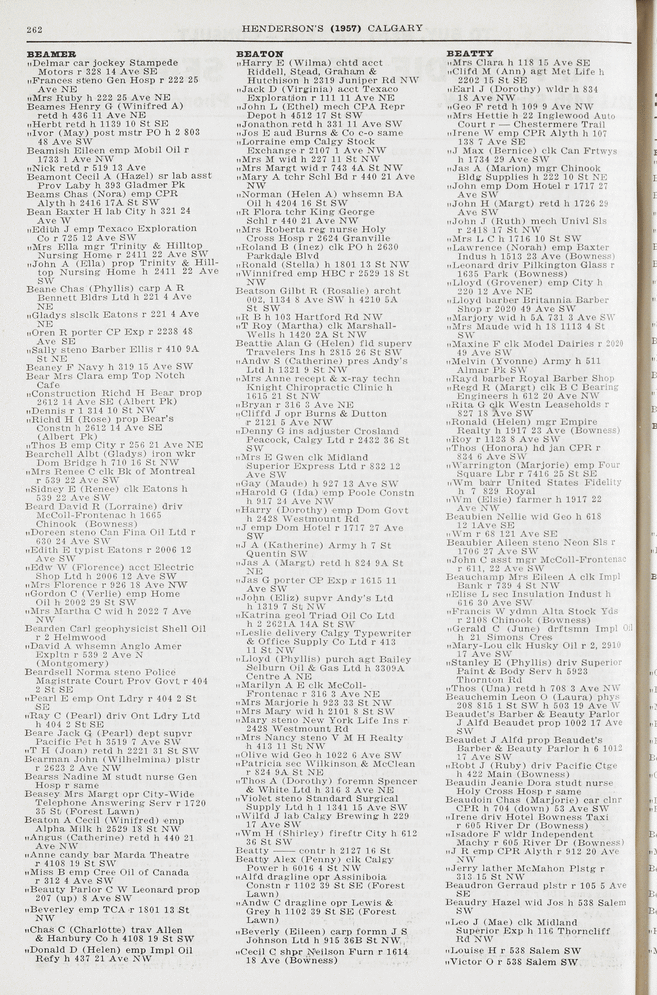 262
HENDERSON'S (1957) CALGARY
BEAMER
"Delmar car jockey Stampede
Motors r 328 14 Ave SE
"Frances steno Gen Hosp r 222 25
Ave NE
"Mrs Ruby h 222 25 Ave NE
Beames Henry G (Winifred A)
retd h 436 11 Ave NE
"Herbt retd h 1139 10 St SE
"Ivor (May) post mstr PO h 2 803
48 Ave SW
Beamish Eileen emp Mobil Oil r
1733 1 Ave NW
"Nick retd r 519 13 Ave
Beamont Cecil A (Hazel) sr lab asst
Prov Laby h 393 Gladmer Pk
Beams Chas (Nora) emp CPR
Alyth h 2416 17A St SW
Bean Baxter H lab City h 321 24
Ave W
"Edith J emp Texaco Exploration
Co r 725 12 Ave SW
"Mrs Ella mgr Trinity & Hilltop
Nursing Home r 2411 22 Ave SW
"John A (Ella) prop Trinity & Hill-
top Nursing Home h 2411 22 Ave
SW
Beane Chas (Phyllis) carp A R
Bennett Bldrs Ltd h 221 4 Ave
NE
"Gladys slsclk Eatons r 221 4 Ave
NE
"Oren R porter CP Exp r 2238 48
Ave SE
"Sally steno Barber Ellis r 410 9A
St NE
Beaney F Navy h 319 15 Ave SW
Bear Mrs Clara emp Top Notch
Cafe
"Construction Richd H Bear prop
2612 14 Ave SE (Albert Pk)
"Dennis r 1 314 10 St NW
"Richd H (Rose) prop Bear's
Constn h 2612 14 Ave SE
(Albert Pk)
"Thos B emp City r 256 21 Ave NE
Bearchell Albt (Gladys) iron wkr
Dom Bridge h 710 16 St NW
"Mrs Renee C clk Bk of Montreal
r 539 22 Ave SW
"Sidney E (Renee) clk Eatons h
539 22 Ave SW
Beard David R (Lorraine) driv
McColl-Frontenac h 1665
Chinook (Bowness)
"Doreen steno Can Fina Oil Ltd r
630 24 Ave SW
"Edith E typist Eatons r 2006 12
Ave SW
"Edw W (Florence) acct Electric
Shop Ltd h 2006 12 Ave SW
"Mrs Florence r 926 18 Ave NW
"Gordon C (Verlie) emp Home
Oil h 2002 29 St SW
"Mrs Martha C wid h 2022 7 Ave
NW
Bearden Carl geophysicist Shell Oil
r 2 Helmwood
"David A whsemn Anglo Amer
Expltn r 539 2 Ave N
(Montgomery)
Beardsell Norma steno Police
Magistrate Court Prov Govt r 404
2 St SE
"Pearl E emp Ont Ldry r 404 2 St
SE
"Ray C (Pearl) driv Ont Ldry Ltd
h 404 2 St SE
Beare Jack G (Pearl) dept supvr
Pacific Pet h 3519 7 Ave SW
"T H (Joan) retd h 2221 31 St SW
Bearman John (Wilhelmina) plstr
r 2623 2 Ave NW
Bearss Nadine M studt nurse Gen
Hosp r same
Beasey Mrs Margt opr City-Wide
Telephone Answering Serv r 1720
35 St (Forest Lawn)
Beaton A Cecil (Winifred) emp
Alpha Milk h 2529 18 St NW
"Angus (Catherine) retd h 440 21
Ave NW
"Anne candy bar Marda Theatre
r 4108 19 St SW
"Miss B emp Cree Oil of Canada
r 312 4 Ave SW
"Beauty Parlor C W Leonard prop
207 (up) 8 Ave SW
"Beverley emp TCA r 1801 13 St
NW
"Chas C (Charlotte) trav Allen
& Hanbury Co h 4108 19 St SW
"Donald D (Helen) emp Impl Oil
Refy h 437 21 Ave NW
BEATON
"Harry E (Wilma) chtd acct
Riddell, Stead, Graham &
Hutchison h 2319 Juniper Rd NW
"Jack D (Virginia) acct Texaco
Exploration r 111 11 Ave NE
"John L (Ethel) mech CPA Repr
Depot h 4512 17 St SW
"Jonathon retd h 331 11 Ave SW
"Jos E aud Burns & Co c-o same
"Lorraine emp Calgy Stock
Exchange r 2107 1 Ave NW
"Mrs M wid h 227 11 St NW
"Mrs Margt wid r 743 4A St NW
"Mary A tchr Schl Bd r 440 21 Ave
NW
"Norman (Helen A) whsemn BA
Oil h 4204 16 St SW
"R Flora tchr King George
Schl r 440 21 Ave NW
"Mrs Roberta reg nurse Holy
Cross Hosp r 2624 Granville
"Roland B (Inez) clk PO h 2630
Parkdale Blvd
"Ronald (Stella) h 1801 13 St NW
"Winnifred emp HBC r 2529 18 St
NW
Beatson Gilbt R (Rosalie) archt
002, 1134 8 Ave SW h 4210 5A
St SW
"R B h 103 Hartford Rd NW
"T Roy (Martha) clk Marshall-
Wells h 1420 2A St NW
Beattie Alan G (Helen) fld superv
Travelers Ins h 2815 26 St SW
"Andw S (Catherine) pres Andy's
Ltd h 1321 9 St NW
"Mrs Anne recept & x-ray techn
Knight Chiropractic Clinic h
1615 21 St NW
"Bryan r 316 3 Ave NE
"Cliffd J opr Burns & Dutton
r 2121 5 Ave NW
"Denny G ins adjuster Crosland
Peacock, Calgy Ltd r 2432 36 St
SW
"Mrs E Gwen clk Midland
Superior Express Ltd r 832 12
Ave SW
"Gay (Maude) h 927 13 Ave SW
"Harold G (Ida) emp Poole Constn
h 917 24 Ave NW
"Harry (Dorothy) emp Dom Govt
h 2428 Westmount Rd
"J emp Dom Hotel r 1717 27 Ave
SW
"J A (Katherine) Army h 7 St
Quentin SW
"Jas A (Margt) retd h 824 9A St
NE
"Jas G porter CP Exp r 1615 11
Ave SW
"John (Eliz) supvr Andy's Ltd
h 1319 7 St NW
"Katrina geol Triad Oil Co Ltd
h 2 2621A 14A St SW
"Leslie delivery Calgy Typewriter
& Office Supply Co Ltd r 413
11 St NW
"Lloyd (Phyllis) purch agt Bailey
Selburn Oil & Gas Ltd h 3309A
Centre A NE
"Marilyn A E clk McColl-
Frontenac r 316 3 Ave NE
"Mrs Marjorie h 923 33 St NW
"Mrs Mary wid h 2101 8 St SW
"Mary steno New York Life Ins r
2428 Westmount Rd
"Mrs Nancy steno V M H Realty
h 413 11 St NW
"Olive wid Geo h 1022 6 Ave SW
"Patricia sec Wilkinson & McClean
r 824 9A St NE
"Thos A (Dorothy) foremn Spencer
& White Ltd h 316 3 Ave NE
"Violet steno Standard Surgical
Supply Ltd h 1 1341 15 Ave SW
"Wilfd J lab Calgy Brewing h 229
17 Ave SW
"Wm H (Shirley) fireftr City h 612
36 St SW
Beatty —— contr h 2127 16 St
Beatty Alex (Penny) clk Calgy
Power h 6016 4 St NW
"Alfd dragline opr Assiniboia
Constn r 1102 39 St SE (Forest
Lawn)
"Andw C dragline opr Lewis &
Grey h 1102 39 St SE (Forest
Lawn)
"Beverly (Eileen) carp formn J S
Johnson Ltd h 915 36B St NW
"Cecil C shpr Neilson Furn r 1614
18 Ave (Bowness)
BEATTY
"Mrs Clara h 118 15 Ave SE
"Cliffd M (Ann) agt Met Life h
2202 15 St SE
"Earl J (Dorothy) wldr h 834
18 Ave NW
"Geo F retd h 109 9 Ave NW
"Mrs Hettie h 22 Inglewood Auto
Court r — Chestermere Trail
"Irene W emp CPR Alyth h 107
138 7 Ave SE
"J Max (Bernice) clk Can Frtwys
h 1734 29 Ave SW
"Jas A (Marion) mgr Chinook
Bldg Supplies h 222 10 St NE
"John emp Dom Hotel r 1717 27
Ave SW
"John H (Margt) retd h 1726 29
Ave SW
"John J (Ruth) mech Univl Sls
r 2418 17 St NW
"Mrs L C h 1716 10 St SW
"Lawrence (Norah) emp Baxter
Indus h 1513 23 Ave (Bowness)
"Leonard driv Pilkington Glass r
1635 Park (Bowness)
"Lloyd (Grovener) emp City h
220 12 Ave NE
"Lloyd barber Britannia Barber
Shop r 2020 49 Ave SW
"Marjory wid h 5A 731 3 Ave SW
"Mrs Maude wid h 18 1113 4 St
SW
"Maxine F clk Model Dairies r 2020
49 Ave SW
"Melvin (Yvonne) Army h 511
Almar Pk SW
"Rayd barber Royal Barber Shop
"Regd R (Margt) clk B C Bearing
Engineers h 612 20 Ave NW
"Rita G clk Westn Leaseholds r
827 18 Ave SW
"Ronald (Helen) mgr Empire
Realty h 1917 23 Ave (Bowness)
"Roy r 1123 8 Ave SW
"Thos (Honora) hd jan CPR r
834 6 Ave SW
"Warrington (Marjorie) emp Four
Square Lbr r 7416 25 St SE
"Wm barr United States Fidelity
h 7 829 Royal
"Wm (Elsie) farmer h 1917 22
Ave NW
Beaubien Nellie wid Geo h 618
12 1Ave SE
"Wm r 68 121 Ave SE
Beaubier Aileen steno Neon Sls r
1706 27 Ave SW
"John C asst mgr McColl-Frontenac
r 611, 22 Ave SW
Beauchamp Mrs Eileen A clk Impl
Bank r 739 4 St NW
"Elise L sec Insulation Indust h
616 30 Ave SW
"Francis W ydmn Alta Stock Yds
r 2108 Chinook (Bowness)
"Gerald C (June) drftsmn Impl Oil
h 21 Simons Cres
"Mary-Lou clk Husky Oil r 2, 2910
17 Ave SW
"Stanley E (Phyllis) driv Superior
Paint & Body Serv h 5923
Thornton Rd
"Thos (Una) retd h 708 3 Ave NW
Beauchemin Leon O (Laura) phys
208 815 1 St SW h 503 19 Ave W
Beaudet's Barber & Beauty Parlor
J Alfd Beaudet prop 1002 17 Ave
SW
Beaudet J Alfd prop Beaudet's
Barber & Beauty Parlor h 6 1012
17 Ave SW
"Robt J (Ruby) driv Pacific Ctge
h 422 Main (Bowness)
Beaudin Jeanie Dora studt nurse
Holy Cross Hosp r same
Beaudoin Chas (Marjorie) car clnr
CPR h 704 (down) 53 Ave SW
"Irene driv Hotel Bowness Taxi
r 605 River Dr (Bowness)
"Isadore F wldr Independent
Machy r 605 River Dr (Bowness)
"J R emp CPR Alyth r 912 20 Ave
NW
"Jerry lather McMahon Plstg r
313 15 St NW
Beaudron Gerraud plstr r 105 5 Ave
SE
Beaudry Hazel wid Jos h 538 Salem
SW
"Leo J (Mae) clk Midland
Superior Exp h 116 Thorncliff
Rd NW
"Louise H r 538 Salem SW
"Victor O r 538 Salem SW